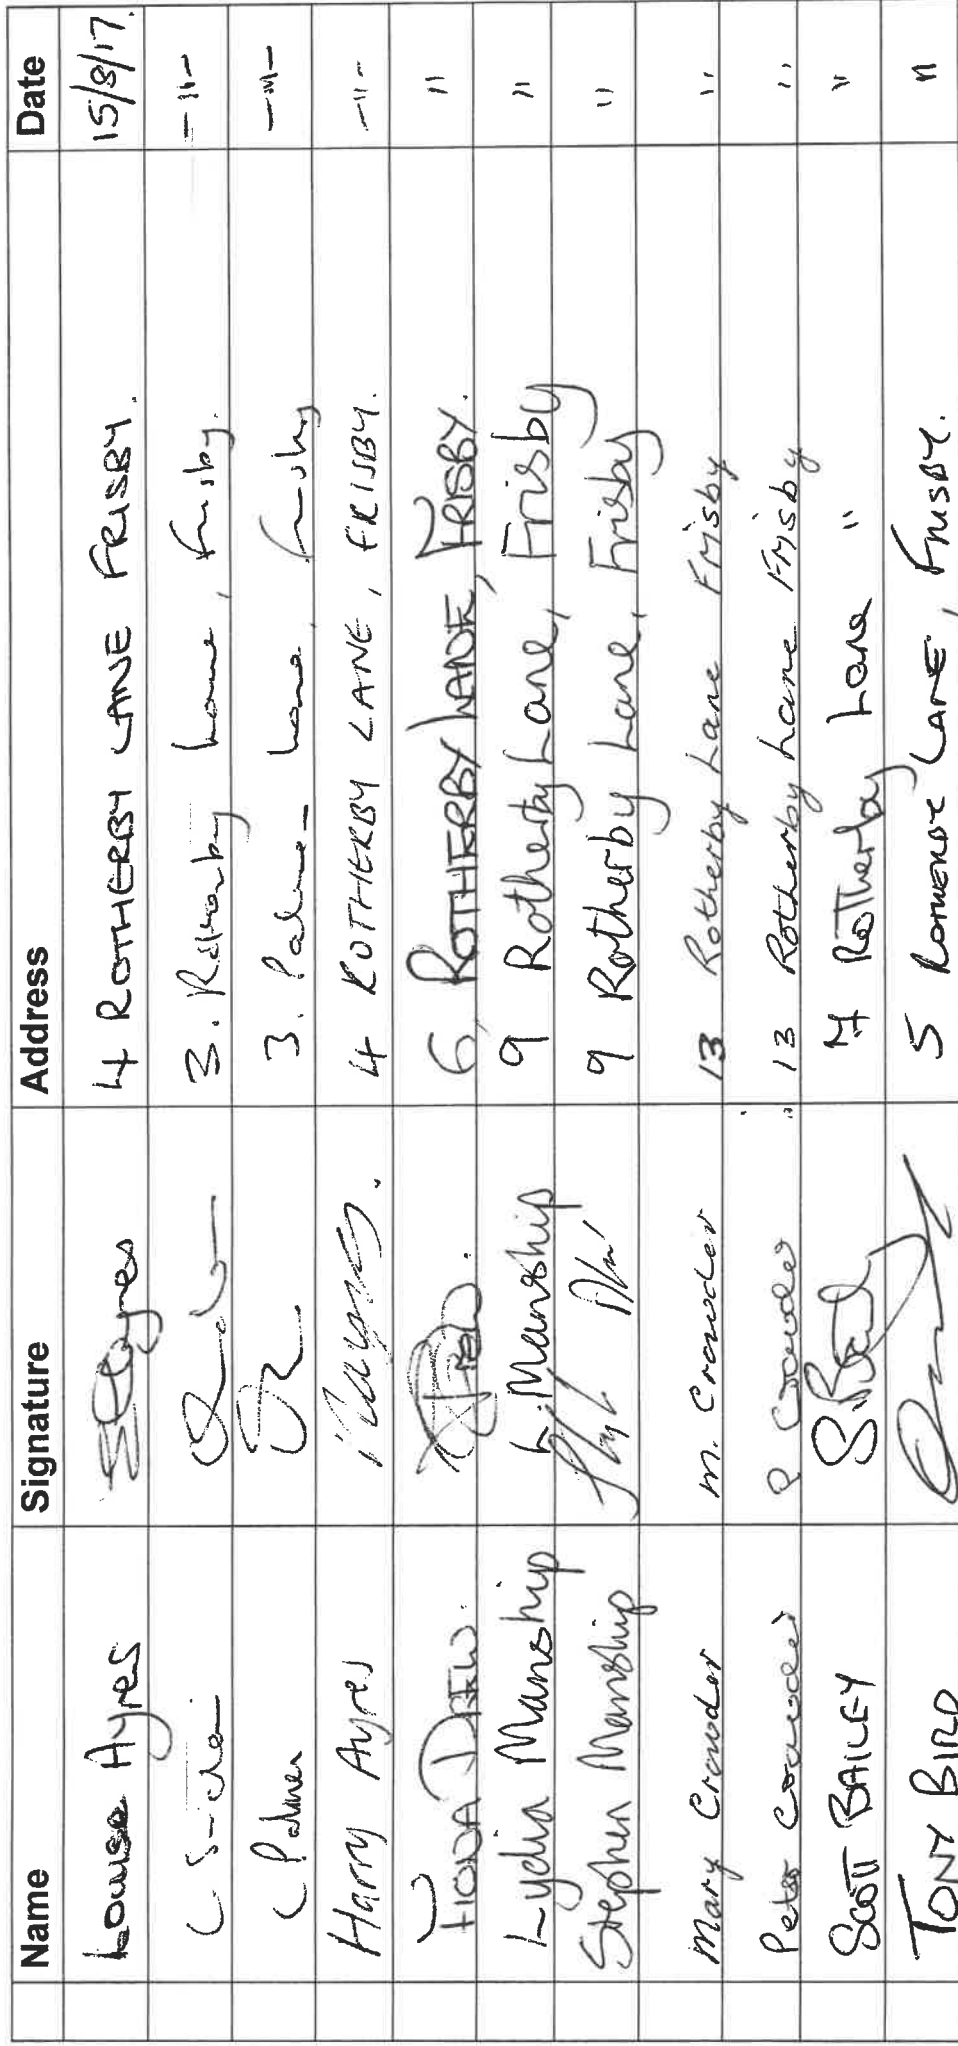 Name Signature Address Date
Louise Ayres Ayres 4 ROTHERBY LANE FRISBY. 15/8/17.
C 3. Lane, Frisby. -"-
C Palmer 3. Lane, Frisby -"-
Harry Ayres HAyres. 4 ROTHERBY LANE, FRISBY. -"-
FIONA DREW. 6, ROTHERBY LANE, FRISBY. "
Lydia Manship L. Manship 9 Rotherby Lane, Frisby "
Stephen Manship 9 Rotherby Lane, Frisby "
Mary Crowder M. Crowder 13 Rotherby Lane Frisby "
Peter Crowder P Crowder 13 Rotherby Lane Frisby "
SCOTT BAILEY 7 Rotherby Lane " "
TONY BIRD 5 ROTHERBY LANE, FRISBY. "